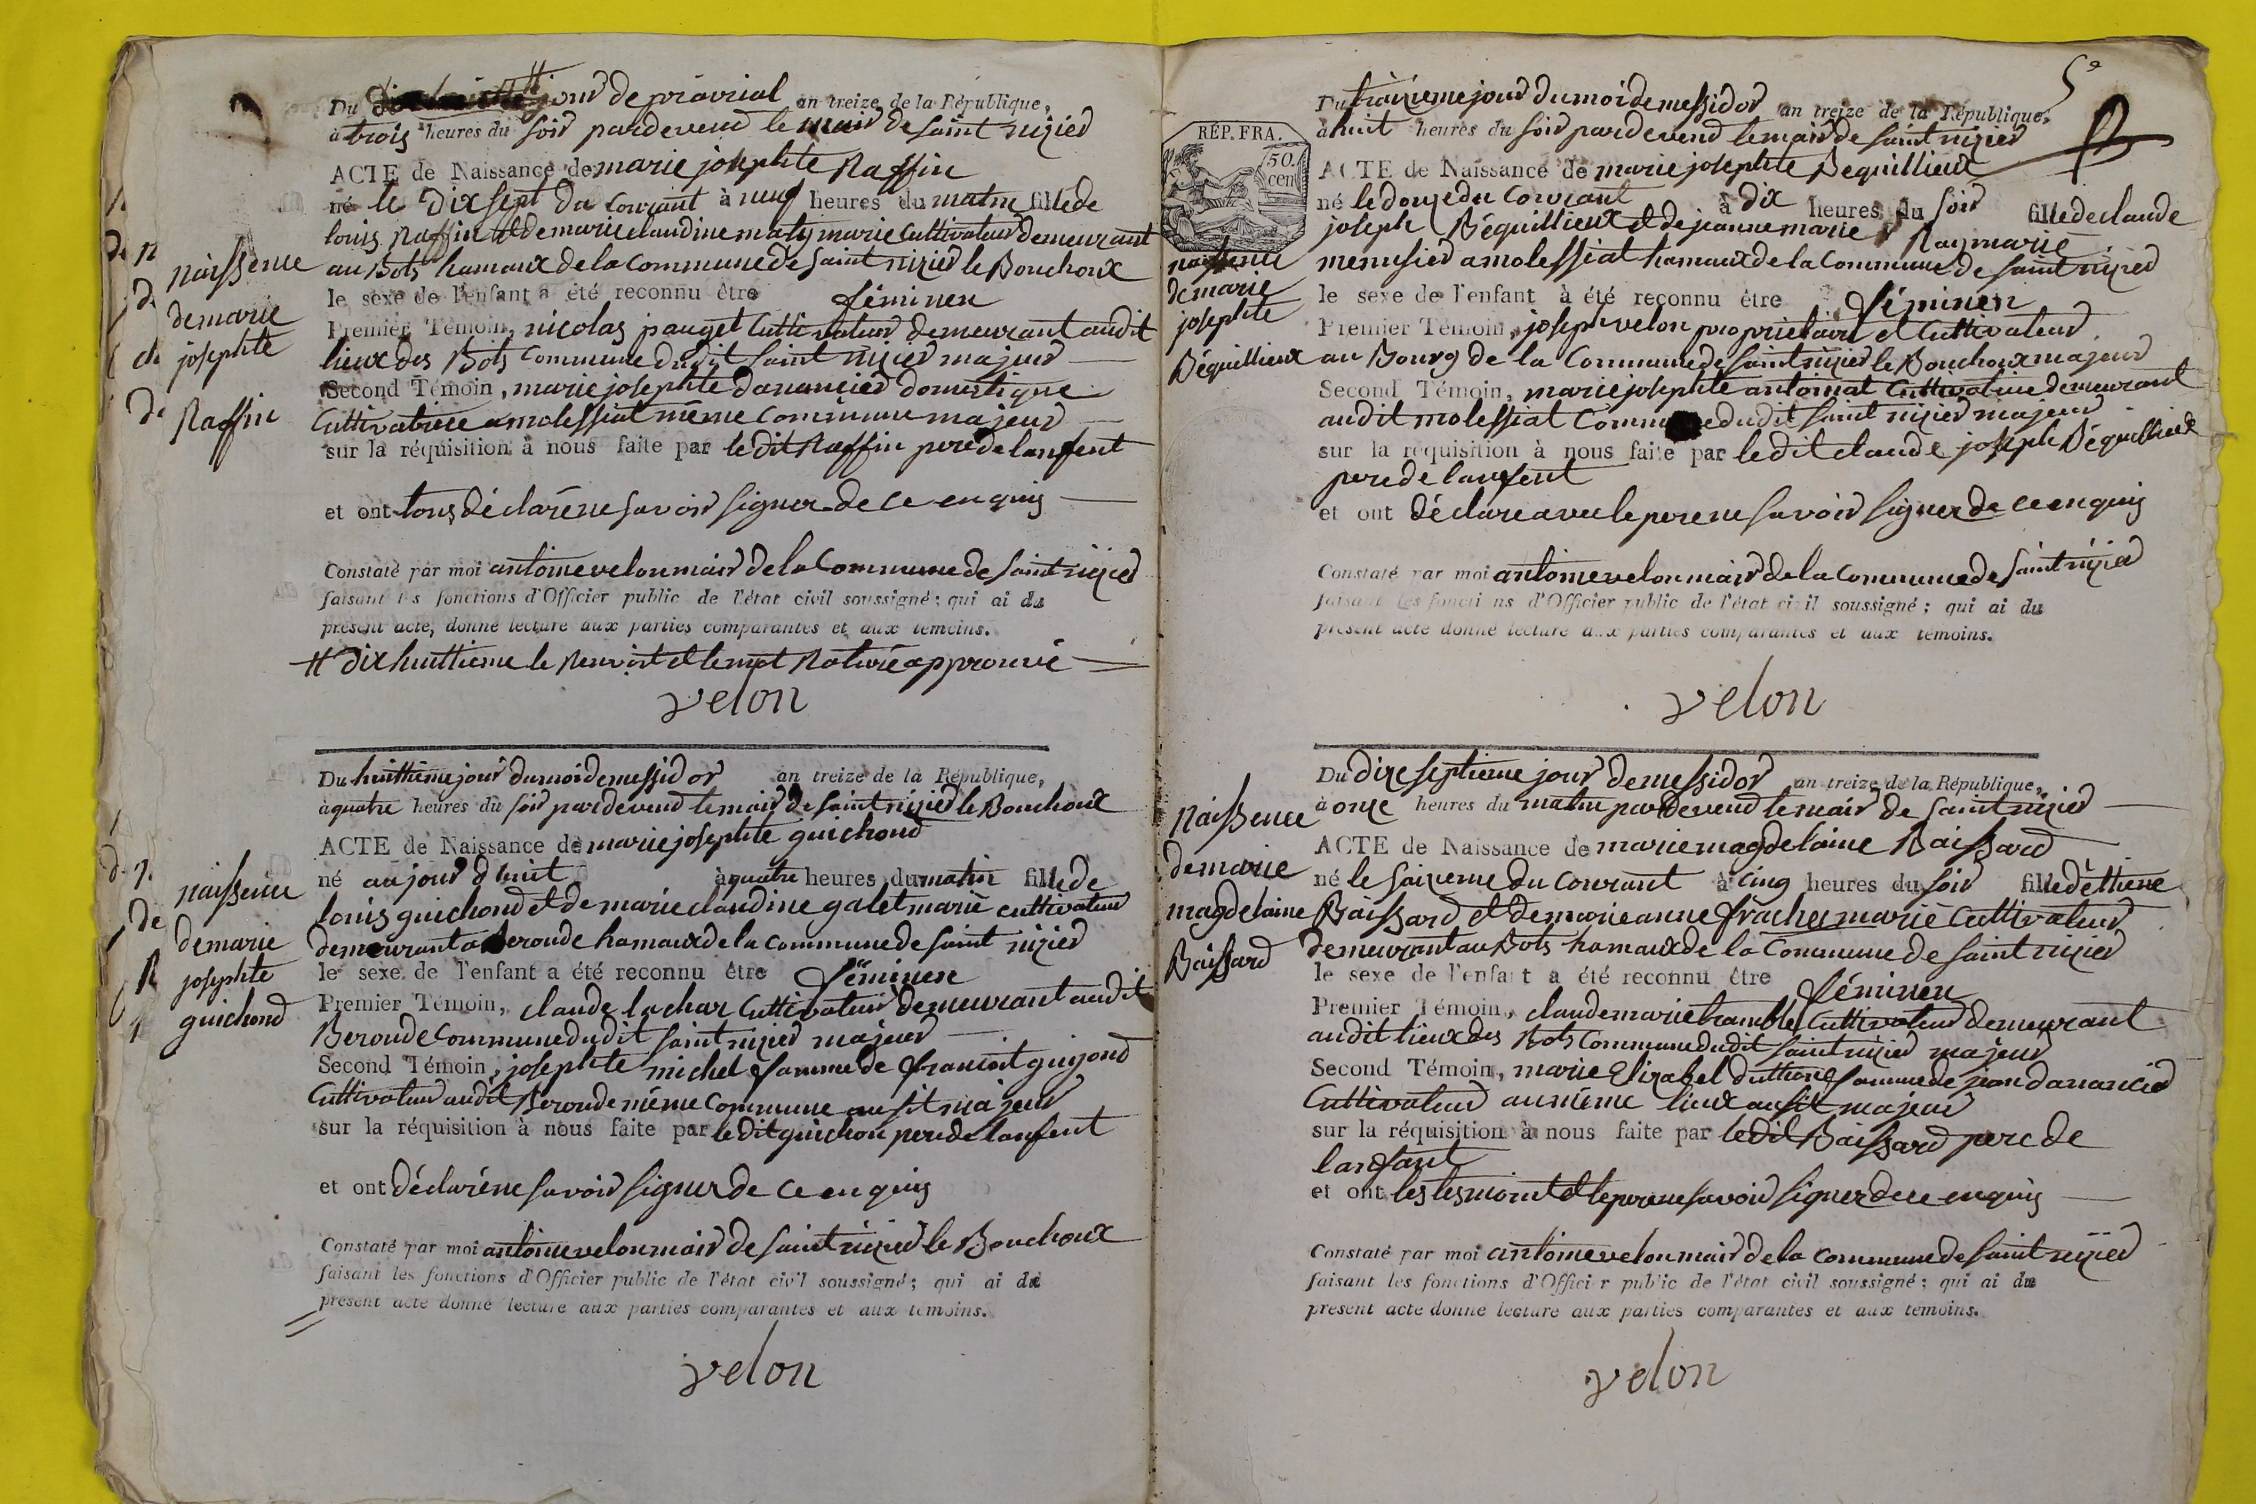 Du jour de prairial an treize de la République,
à trois heures du soir pardevend le mair de saint nizied
ACTE de Naissance de marie josephte Raffin
né le Dix sept du courant à neuf heures du matin fille de
louis Raffin et de marie claudine maty marié Cultivateur demeurant
au Bots hamaux de la commune de saint nizied le Bouchoux
le sexe de l'enfant a été reconnu être féminen
Premier Témoin, nicolas pauget Cultivateur demeurant audit
lieux des Bots commune dudit saint nizied majeur
Second Témoin, marie josephte danancied domestique
Cultivatrice a molessiat même commune majeur
sur la réquisition à nous faite par le dit Raffin pere de lanfent
et ont tous déclaré ne savoir signer de ce enquis
Constaté par moi antoine velon mair de la Commune de saint nizied
faisant les fonctions d'Officier public de l'état civil soussigné; qui ai du
présent acte, donné lecture aux parties comparantes et aux témoins.
# Dix huittieme le Renvoit et le mot Raturé approuvé
velon
naissence
de marie
josephte
Raffin
Du huittieme jour du moi de messidor an treize de la République,
à quatre heures du soir pardevend le mair de saint nizied le Bouchoux
ACTE de Naissance de marie josephte guichond
né aujour d huit à quatre heures du matin fille de
louis guichond et de marie claudine galet marié cultivateur
demeurant a Beroude hamaux de la commune de saint nizied
le sexe de l'enfant a été reconnu être féminen
Premier Témoin, claude lachar Cultivateur demeurant audit
Beroude commune dudit saint nizied majeur
Second Témoin, josephte michel famme de francoit guigond
Cultivateur audit Beroude même Commune ausit majeur
sur la réquisition à nous faite par le dit guichon pere de lanfent
et ont déclaré ne savoir signer de ce enquis
Constaté par moi antoine velon mair de saint nizied le Bouchoux
faisant les fonctions d'Officier public de l'état civil soussigné; qui ai du
présent acte donné lecture aux parties comparantes et aux témoins.
velon
naissence
de marie
josephte
guichond
5e
RÉP. FRA.
50.
cen
Du traizieme jour du moi de messidor an treize de la République,
à huit heures du soir pardevend le mair de saint nizied
ACTE de Naissance de marie josephte Bequillieux
né le douze du courant à dix heures du soir fille de claude
joseph Béquillieux et de jeanne marie Ray marié
menusier a molessiat hamaux de la commune de saint nizied
le sexe de l'enfant à été reconnu être féminen
Premier Témoin, joseph velon proprietaire et Cultivateur
au Bourg de la Commune de saint nizied le Bouchoux majeur
Second Témoin, marie josephte antoinat Cultivatrice demeurant
audit molessiat Commune dudit saint nizied majeur
sur la réquisition à nous faite par ledit claude joseph Béquillieux
pere de lanfent
et ont déclare avec le pere ne savoir signer de ce enquis
Constaté par moi antoine velon mair de la commune de saint nizied
faisant les fonctions d'Officier public de l'état civil soussigné; qui ai du
présent acte donné lecture aux parties comparantes et aux témoins.
velon
naissence
de marie
josephte
Béquillieux
Du dixe septieme jour de messidor an treize de la République,
à onze heures du matin pardevend le mair de saint nizied
ACTE de Naissance de marie magdelaine Baissard
né le saizieme du courant à cinq heures du soir fille détiene
Baissard et de marie anne frachet marié Cultivateur
demeurant au Bots hamaux de la Commune de saint nizied
le sexe de l'enfant a été reconnu être féminen
Premier Témoin, claude marie tramblet Cultivateur demeurant
audit lieux des Bots commune dudit saint nizied majeur
Second Témoin, marie Elizabet duthion famme de jean danancied
Cultivateur au même lieux ausit majeur
sur la réquisition à nous faite par ledit Baissard pere de
lanfant
et ont les tesmoint et le pere ne savoir signer de ce enquis
Constaté par moi antoine velon mair de la commune de saint nizied
faisant les fonctions d'Officier public de l'état civil soussigné; qui ai du
présent acte donné lecture aux parties comparantes et aux témoins.
velon
naissence
de marie
magdelaine
Baissard